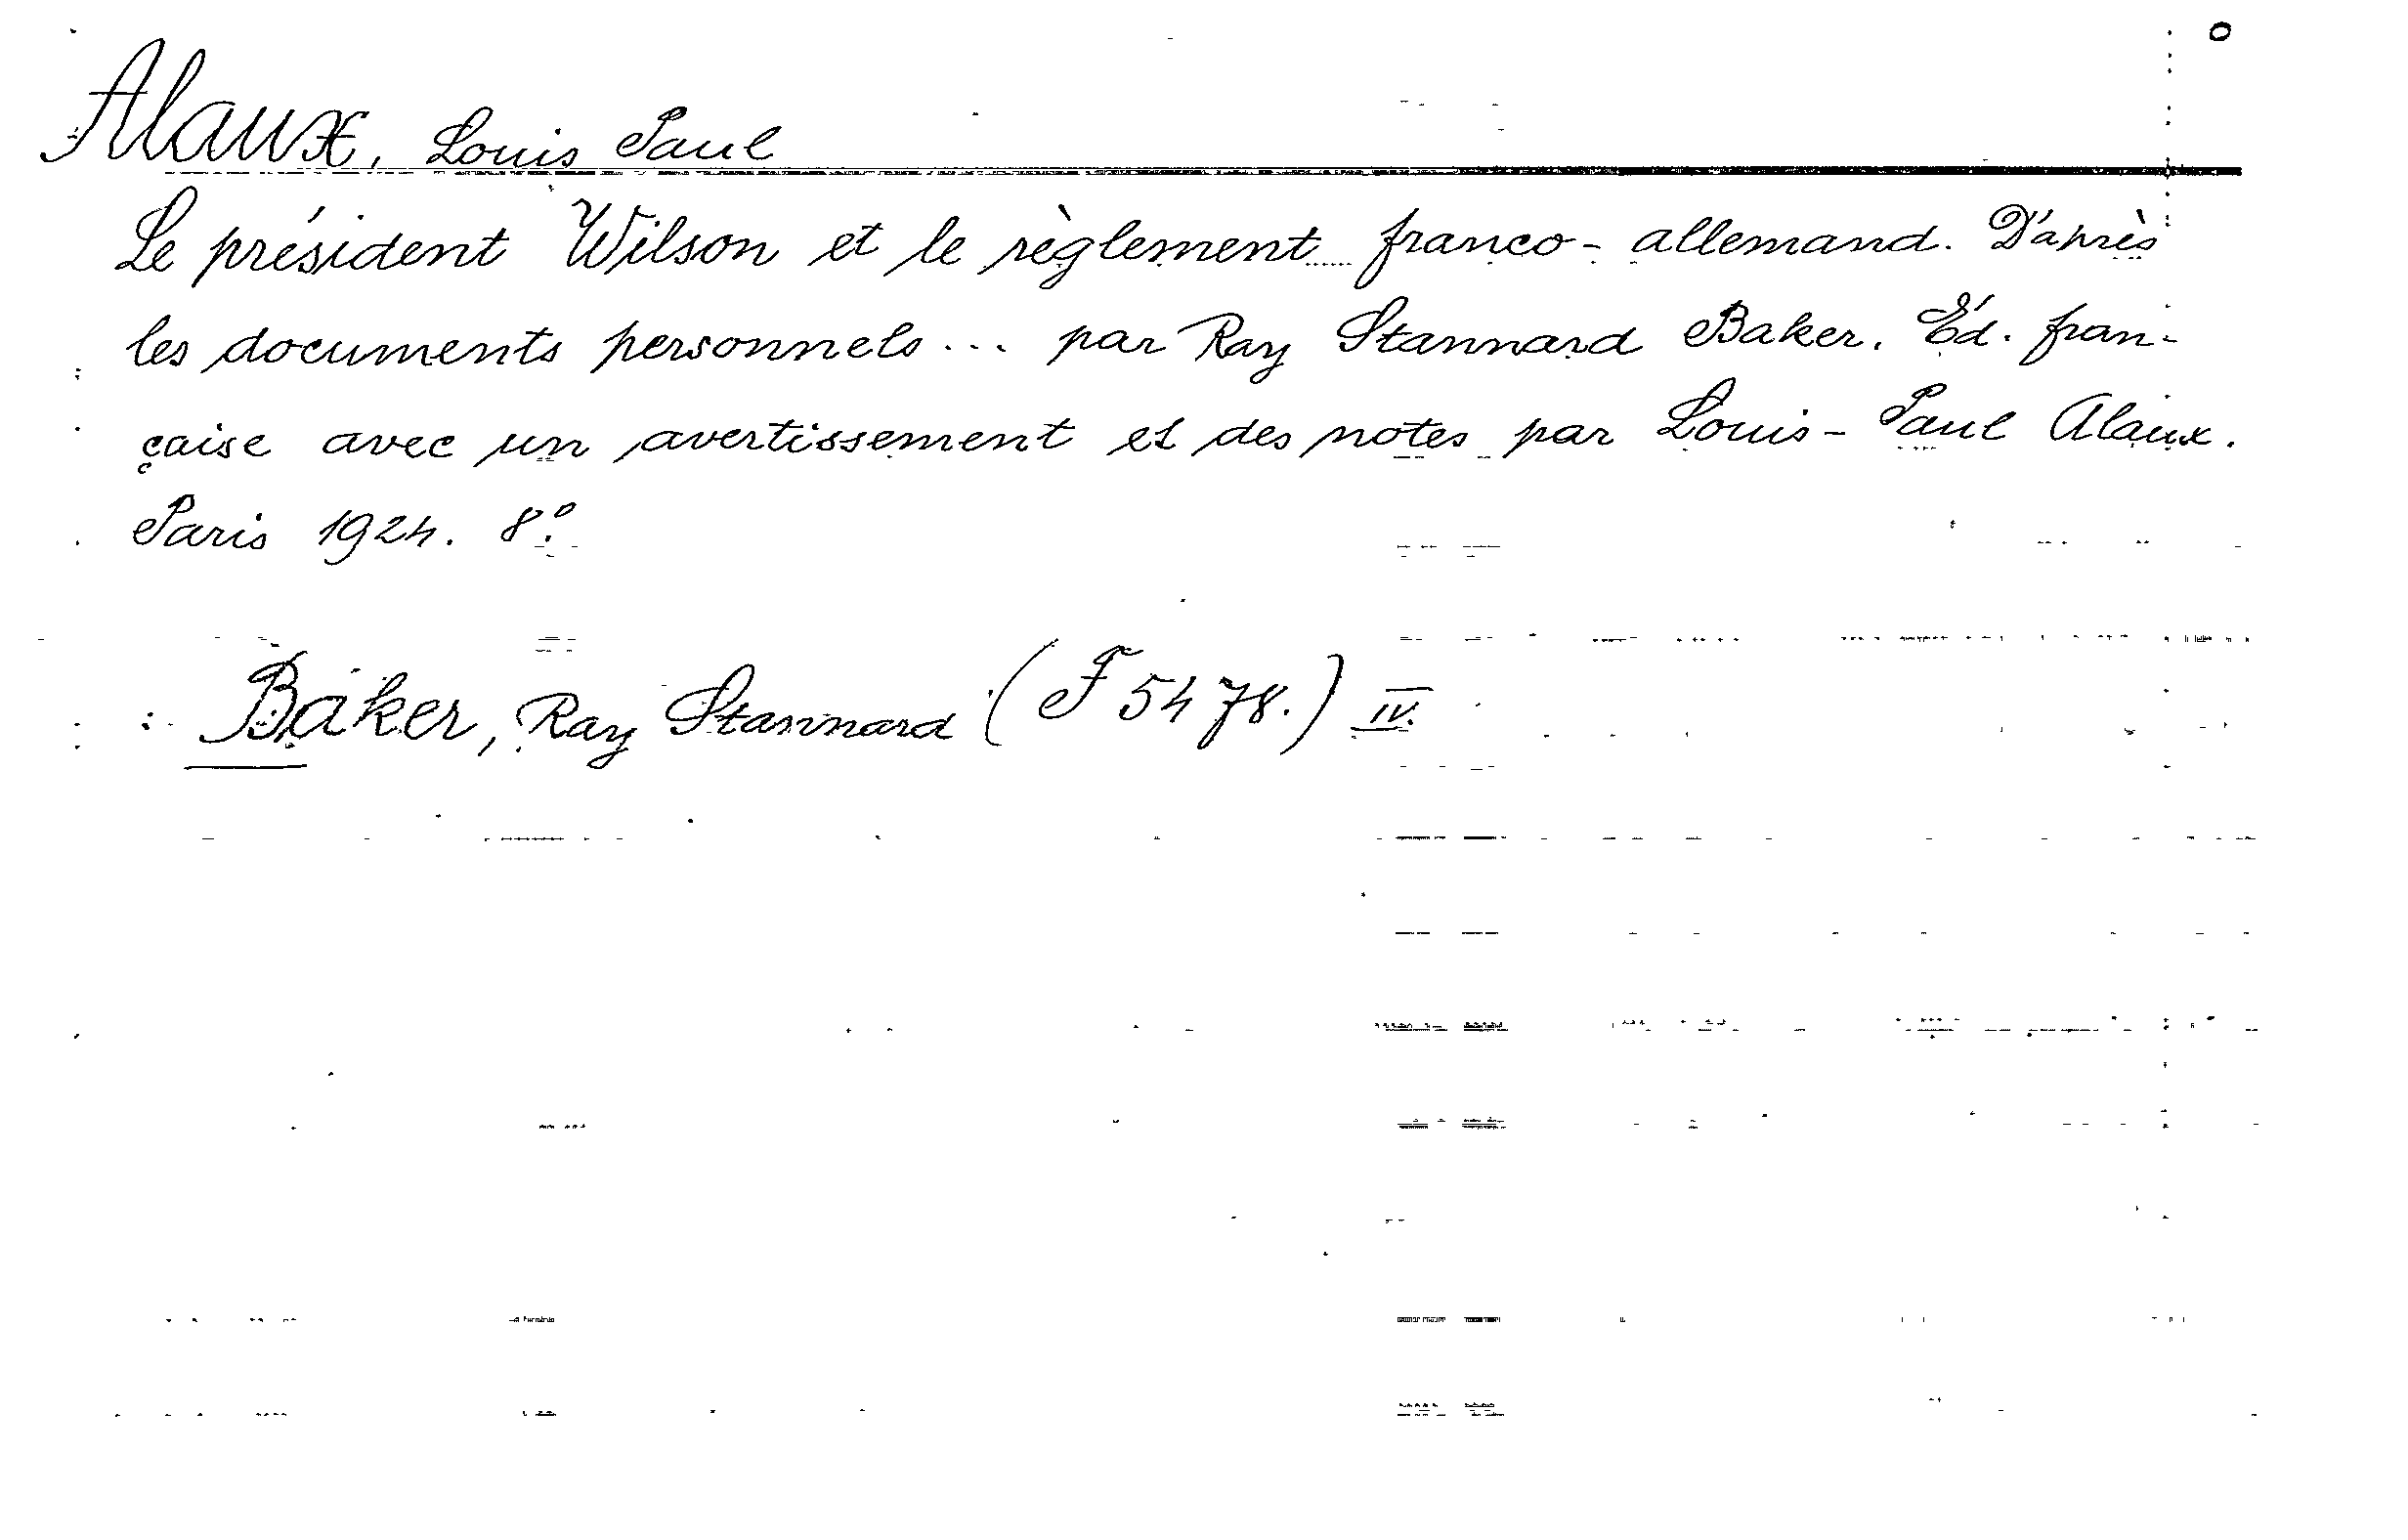 Alaux, Louis Paul
Le président Wilson et le règlement franco-allemand. D'après
les documents personnels... par Ray Stannard Baker. Éd. fran-
çaise avec un avertissement et des notes par Louis-Paul Alaux.
Paris 1924. 8º.
Baker, Ray Stannard (F 5478.) IV.